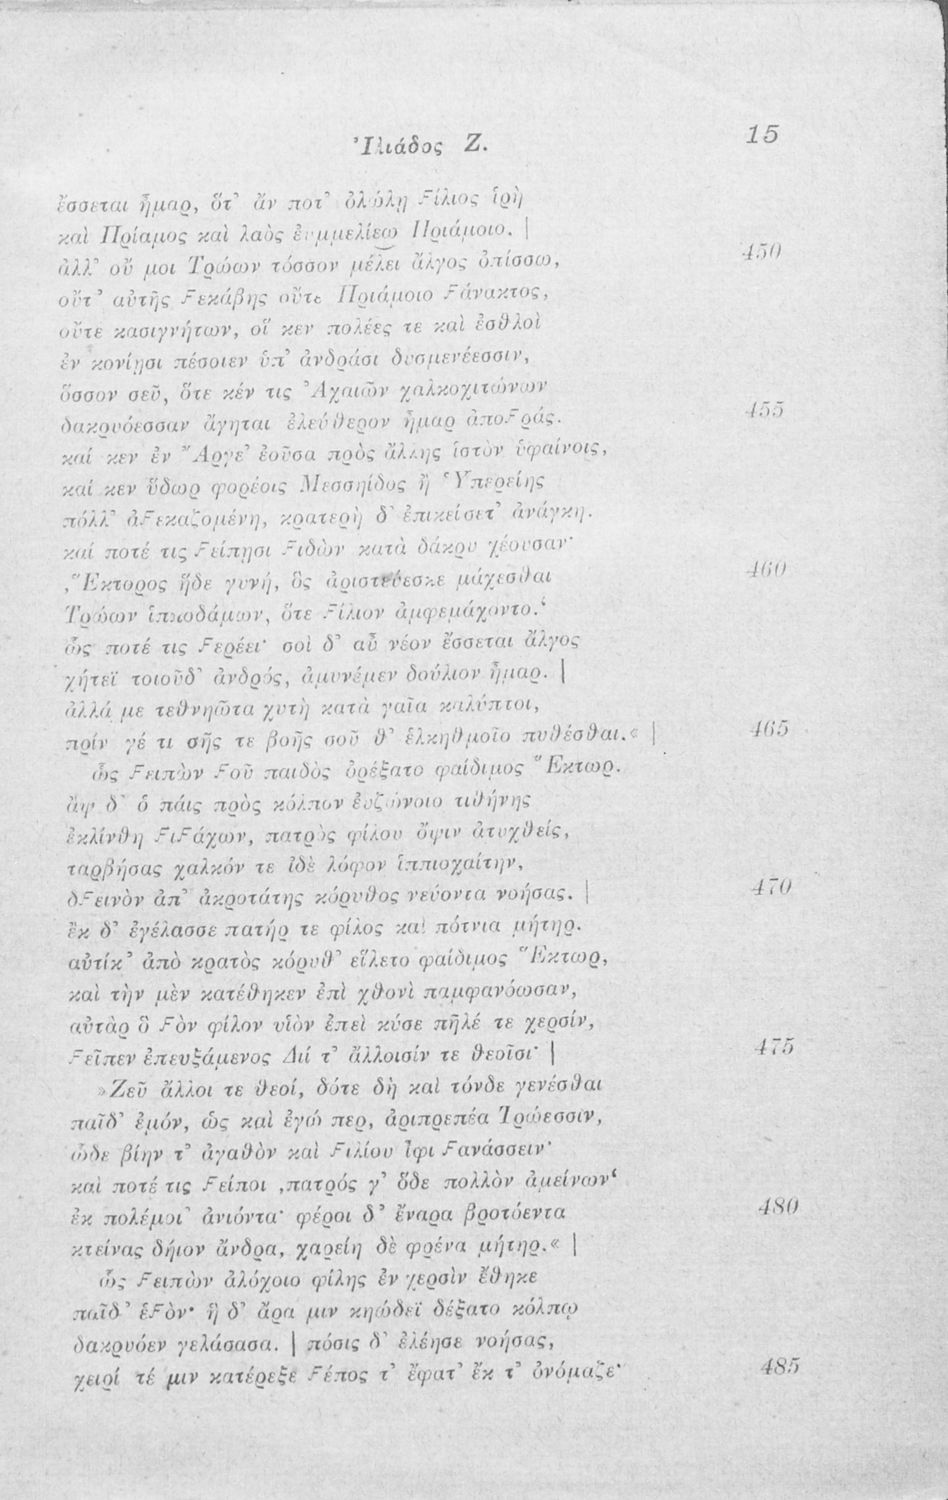 Ἰλιάδος Ζ. 15
ἔσσεται ἦμαρ, ὅτ’ ἄν ποτ’ ὀλώλῃ Ϝίλιος ἱρὴ
καὶ Πρίαμος καὶ λαὸς ἐυμμελίεω Πριάμοιο. |
ἀλλ’ οὔ μοι Τρώων τόσσον μέλει ἄλγος ὀπίσσω, 450
οὔτ’ αὐτῆς Ϝεκάβης οὔτε Πριάμοιο Ϝάνακτος,
οὔτε κασιγνήτων, οἵ κεν πολέες τε καὶ ἐσθλοὶ
ἐν κονίῃσι πέσοιεν ὑπ’ ἀνδράσι δυσμενέεσσιν,
ὅσσον σεῦ, ὅτε κέν τις Ἀχαιῶν χαλκοχιτώνων
δακρυόεσσαν ἄγηται ἐλεύθερον ἦμαρ ἀποϜράς. 455
καί κεν ἐν Ἄργε’ ἐοῦσα πρὸς ἄλλης ἱστὸν ὑφαίνοις,
καί κεν ὕδωρ φορέοις Μεσσηίδος ἢ Ὑπερείης
πόλλ’ ἀϜεκαζομένη, κρατερὴ δ’ ἐπικείσετ’ ἀνάγκη.
καί ποτέ τις Ϝείπῃσι Ϝιδὼν κατὰ δάκρυ χέουσαν·
‚Ἕκτορος ἥδε γυνή, ὃς ἀριστεύεσκε μάχεσθαι 460
Τρώων ἱπποδάμων, ὅτε Ϝίλιον ἀμφεμάχοντο.‘
ὥς ποτέ τις Ϝερέει· σοὶ δ’ αὖ νέον ἔσσεται ἄλγος
χήτεϊ τοιοῦδ’ ἀνδρός, ἀμυνέμεν δούλιον ἦμαρ. |
ἀλλά με τεθνηῶτα χυτὴ κατὰ γαῖα καλύπτοι,
πρίν γέ τι σῆς τε βοῆς σοῦ θ’ ἑλκηθμοῖο πυθέσθαι.« | 465
ὣς Ϝειπὼν Ϝοῦ παιδὸς ὀρέξατο φαίδιμος Ἕκτωρ.
ἂψ δ’ ὁ πάις πρὸς κόλπον ἐυζώνοιο τιθήνης
ἐκλίνθη ϜιϜάχων, πατρὸς φίλου ὄψιν ἀτυχθείς,
ταρβήσας χαλκόν τε ἰδὲ λόφον ἱππιοχαίτην,
δϜεινὸν ἀπ’ ἀκροτάτης κόρυθος νεύοντα νοήσας. | 470
ἐκ δ’ ἐγέλασσε πατήρ τε φίλος καὶ πότνια μήτηρ.
αὐτίκ’ ἀπὸ κρατὸς κόρυθ’ εἵλετο φαίδιμος Ἕκτωρ,
καὶ τὴν μὲν κατέθηκεν ἐπὶ χθονὶ παμφανόωσαν,
αὐτὰρ ὃ Ϝὸν φίλον υἱὸν ἐπεὶ κύσε πῆλέ τε χερσίν,
Ϝεῖπεν ἐπευξάμενος Διί τ’ ἄλλοισίν τε θεοῖσι· | 475
»Ζεῦ ἄλλοι τε θεοί, δότε δὴ καὶ τόνδε γενέσθαι
παῖδ’ ἐμόν, ὡς καὶ ἐγώ περ, ἀριπρεπέα Τρώεσσιν,
ὧδε βίην τ’ ἀγαθὸν καὶ Ϝιλίου ἶφι Ϝανάσσειν·
καὶ ποτέ τις Ϝείποι ‚πατρός γ’ ὅδε πολλὸν ἀμείνων‘
ἐκ πολέμοι’ ἀνιόντα· φέροι δ’ ἔναρα βροτόεντα 480
κτείνας δήιον ἄνδρα, χαρείη δὲ φρένα μήτηρ.« |
ὣς Ϝειπὼν ἀλόχοιο φίλης ἐν χερσὶν ἔθηκε
παῖδ’ ἑϜόν· ἡ δ’ ἄρα μιν κηώδεϊ δέξατο κόλπῳ
δακρυόεν γελάσασα. | πόσις δ’ ἐλέησε νοήσας,
χειρί τέ μιν κατέρεξε Ϝέπος τ’ ἔφατ’ ἔκ τ’ ὀνόμαζε· 485